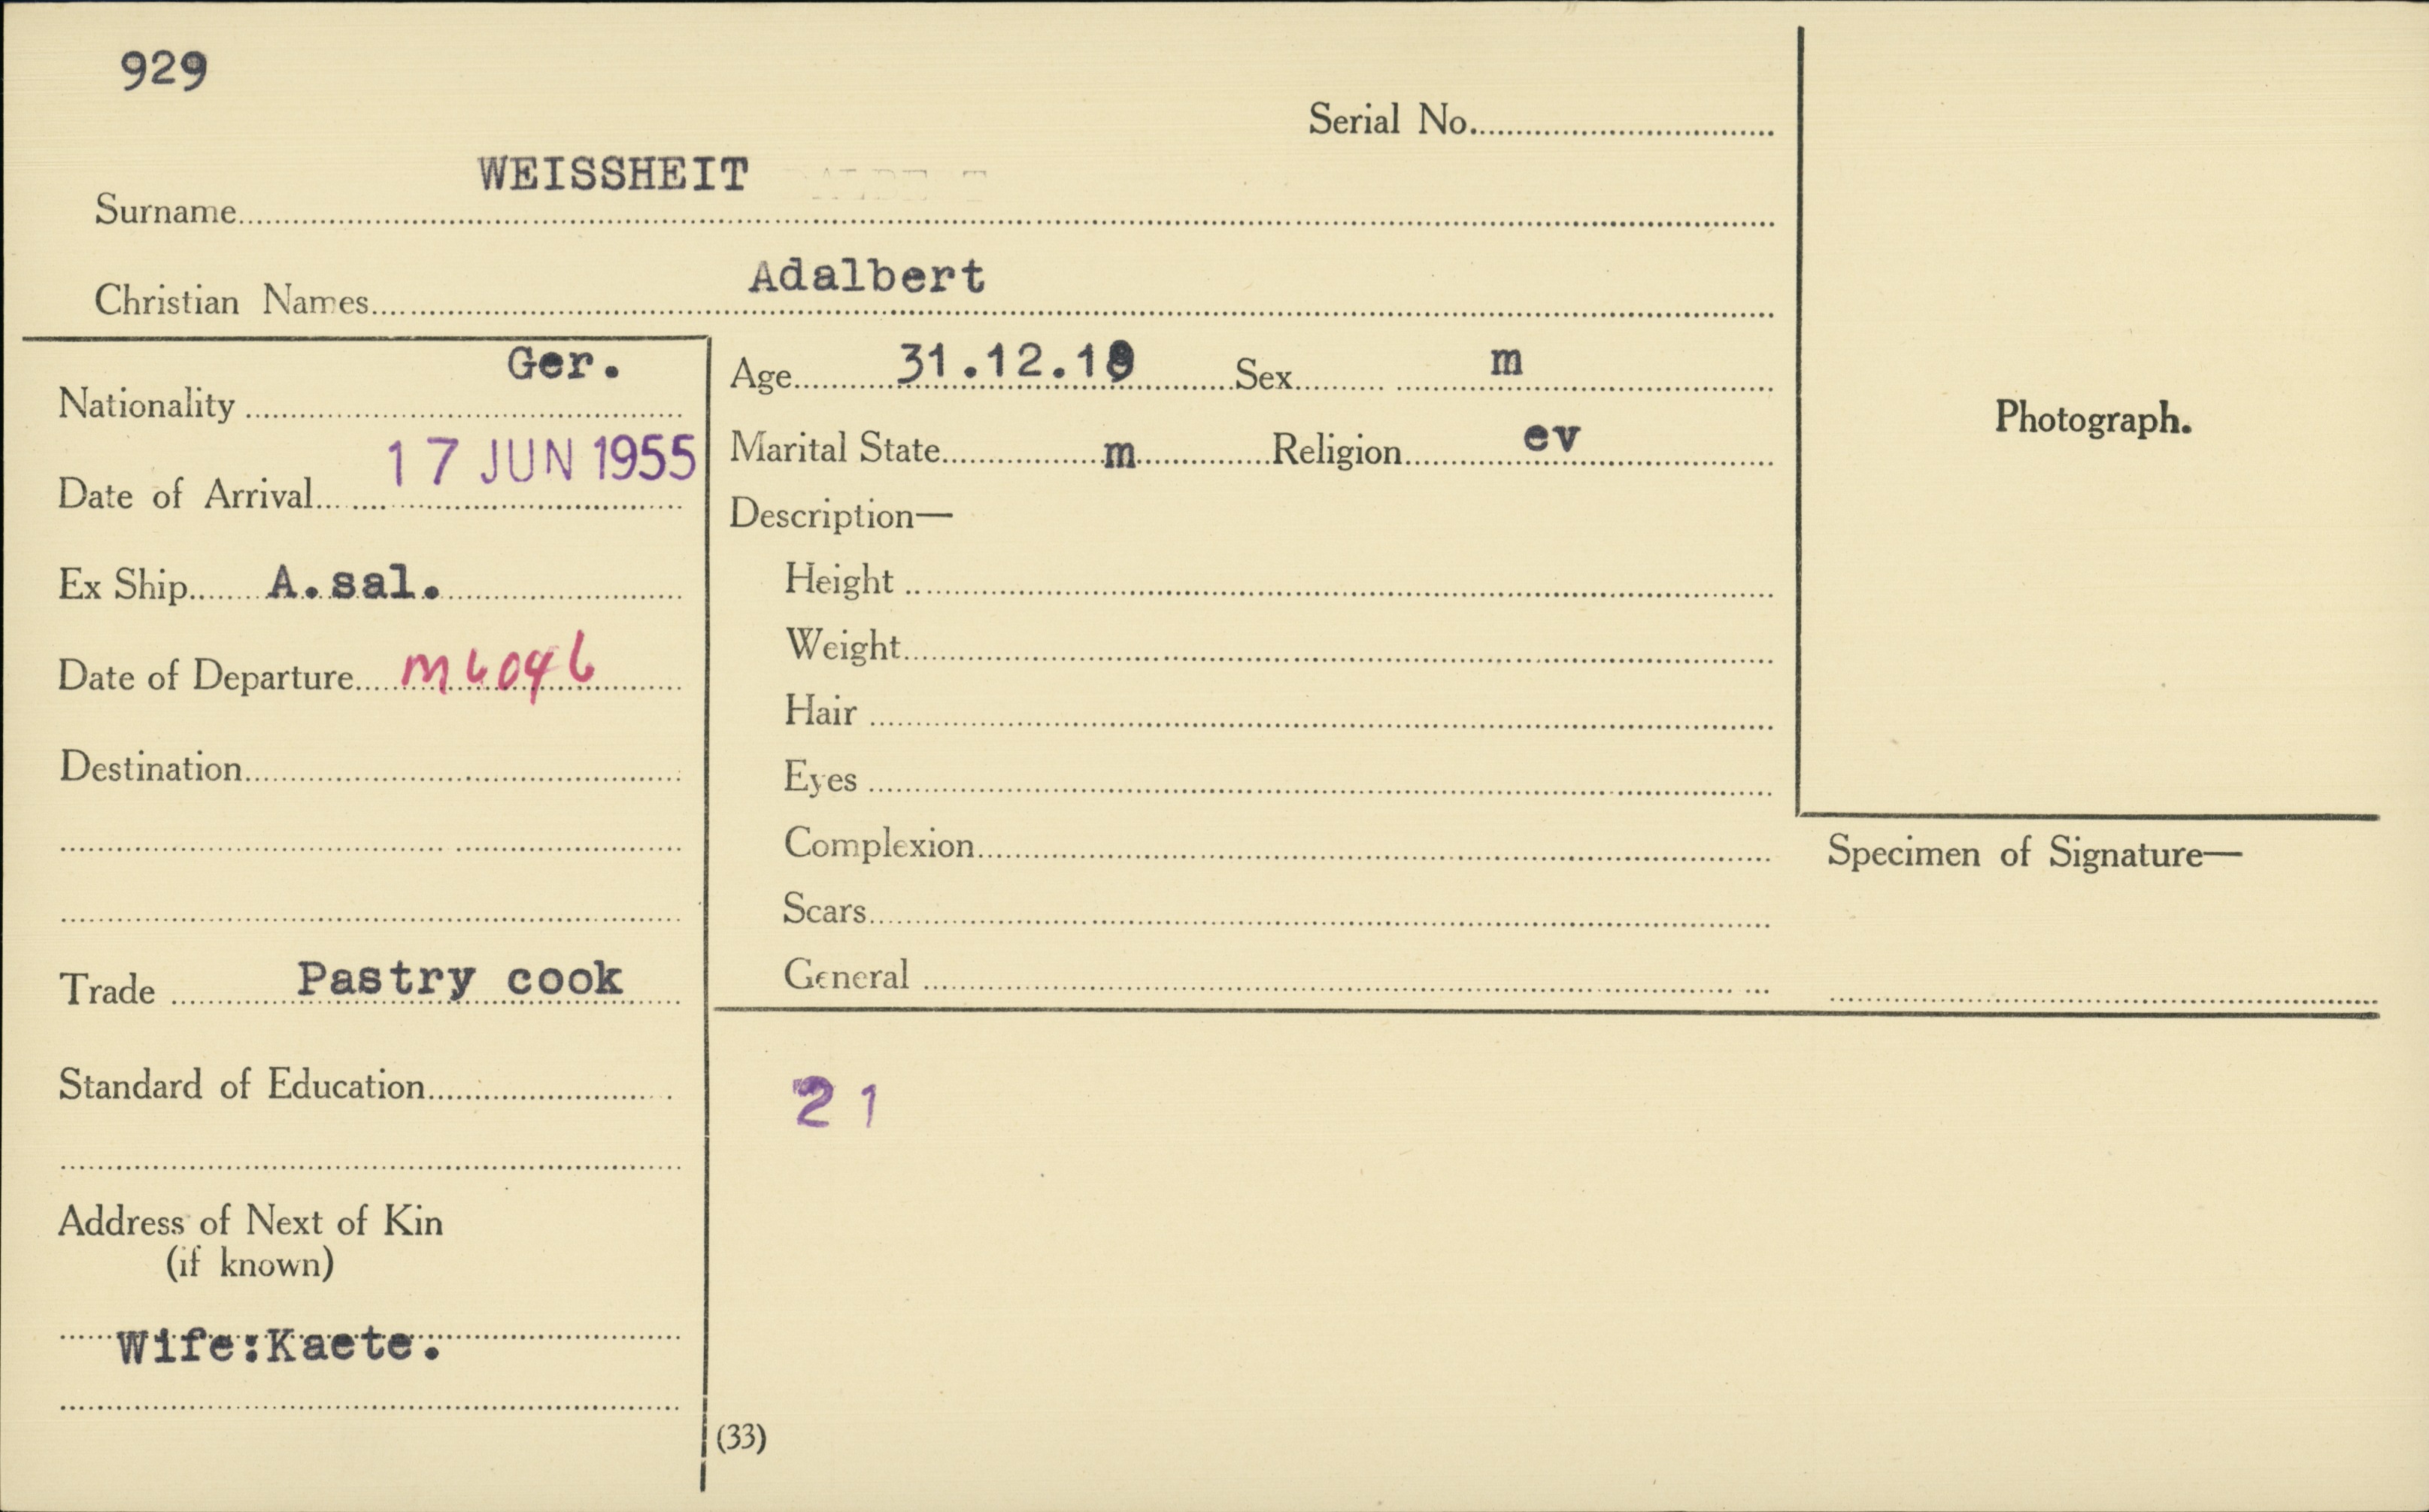 929
Serial No.
WEISSHEIT
Surname
Adalbert
Christian Names
Ger.
Nationality
17 JUN 1955
Date of Arrival
Ex Ship A.sal.
Date of Departure M6046
Destination
Trade Pastry cook
Standard of Education
Address of Next of Kin
(if known)
Wife:Kaete.
Age 31.12.18 Sex m
Marital State m Religion ev
Description—
Height
Weight
Hair
Eyes
Complexion
Scars
General
21
(33)
Photograph.
Specimen of Signature—